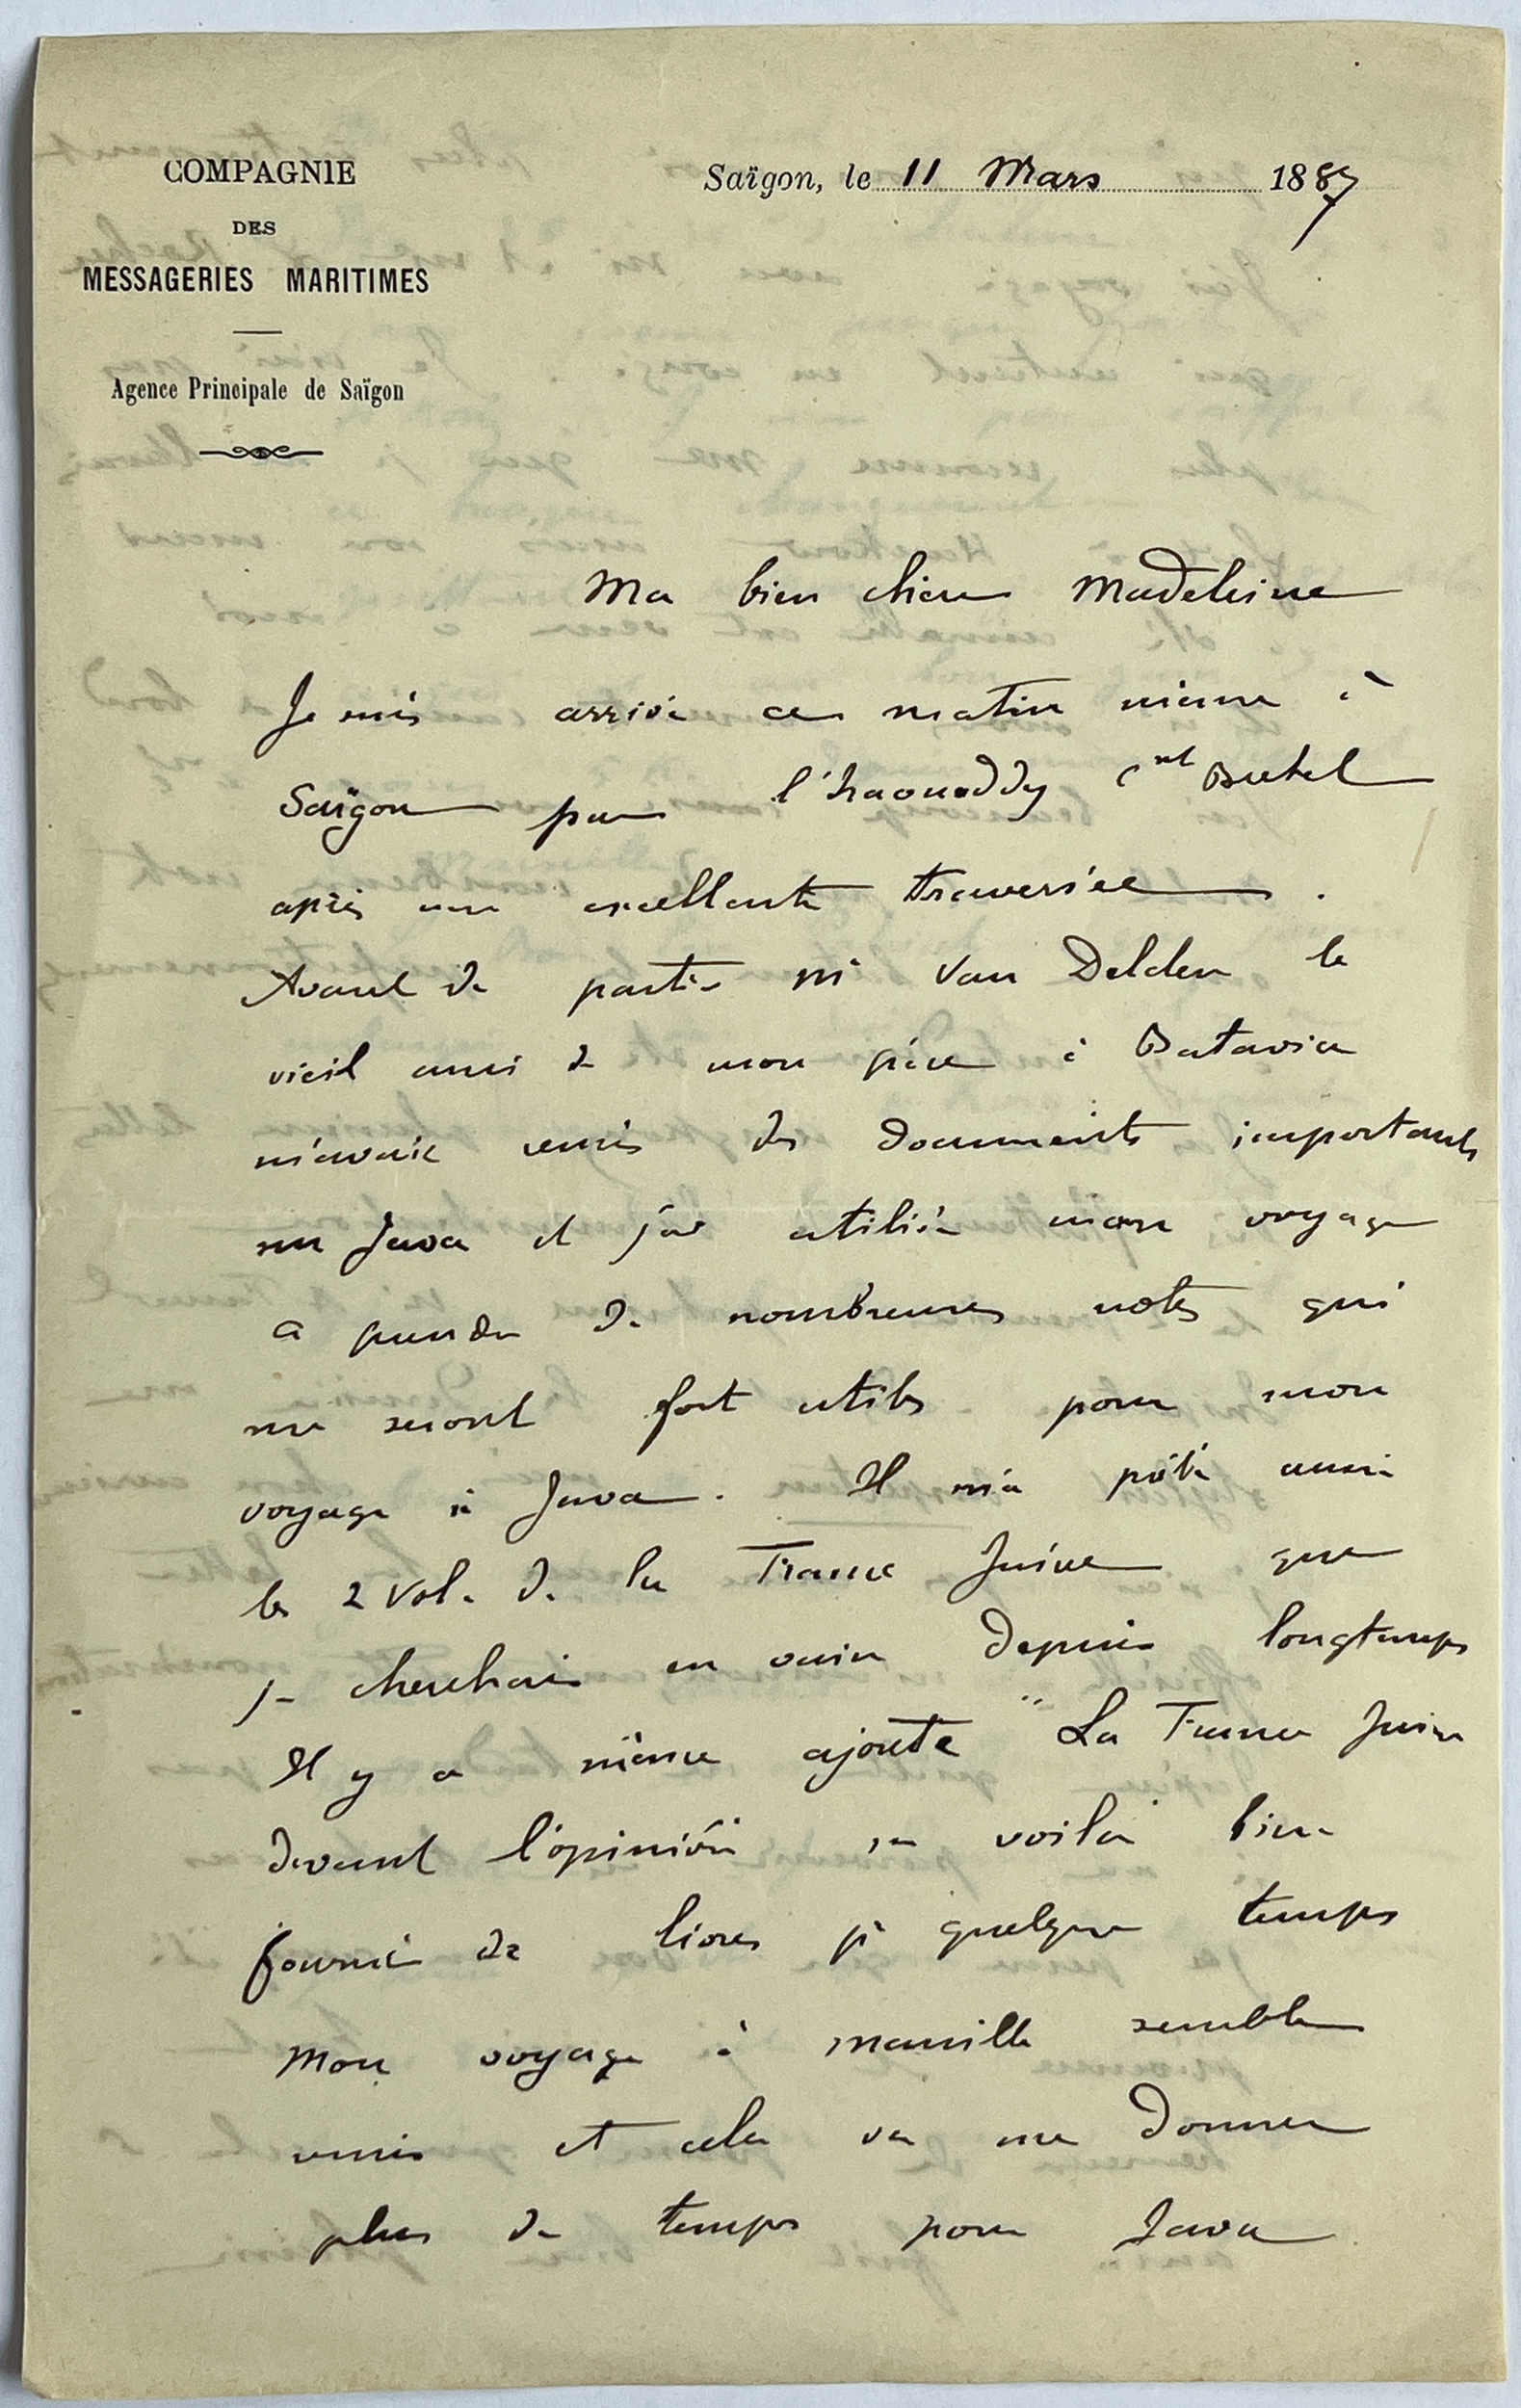 COMPAGNIE
DES
MESSAGERIES MARITIMES
Agence Principale de Saïgon
Saïgon, le 11 Mars 1887
Ma bien chère Madeleine
Je suis arrivé ce matin même à
Saïgon par l'Iraouaddy Cnt
après une excellente traversée .
Avant de partir Mr Van Delden le
vieil ami de mon père à Batavia
m'avait remis des documents importants
sur Java et j'ai utilisé mon voyage
a prendre de nombreuses notes qui
me seront fort utiles pour mon
voyage à Java . Il m'a prêté aussi
les 2 Vol. de la France Juive que
je cherchais en vain depuis longtemps
Il y a même ajouté " La France Juive
devant l'opinion me voilà bien
fourni de livres pr quelque temps
Mon voyage à Manille semble
remis et cela va me donner
plus de temps pour Java